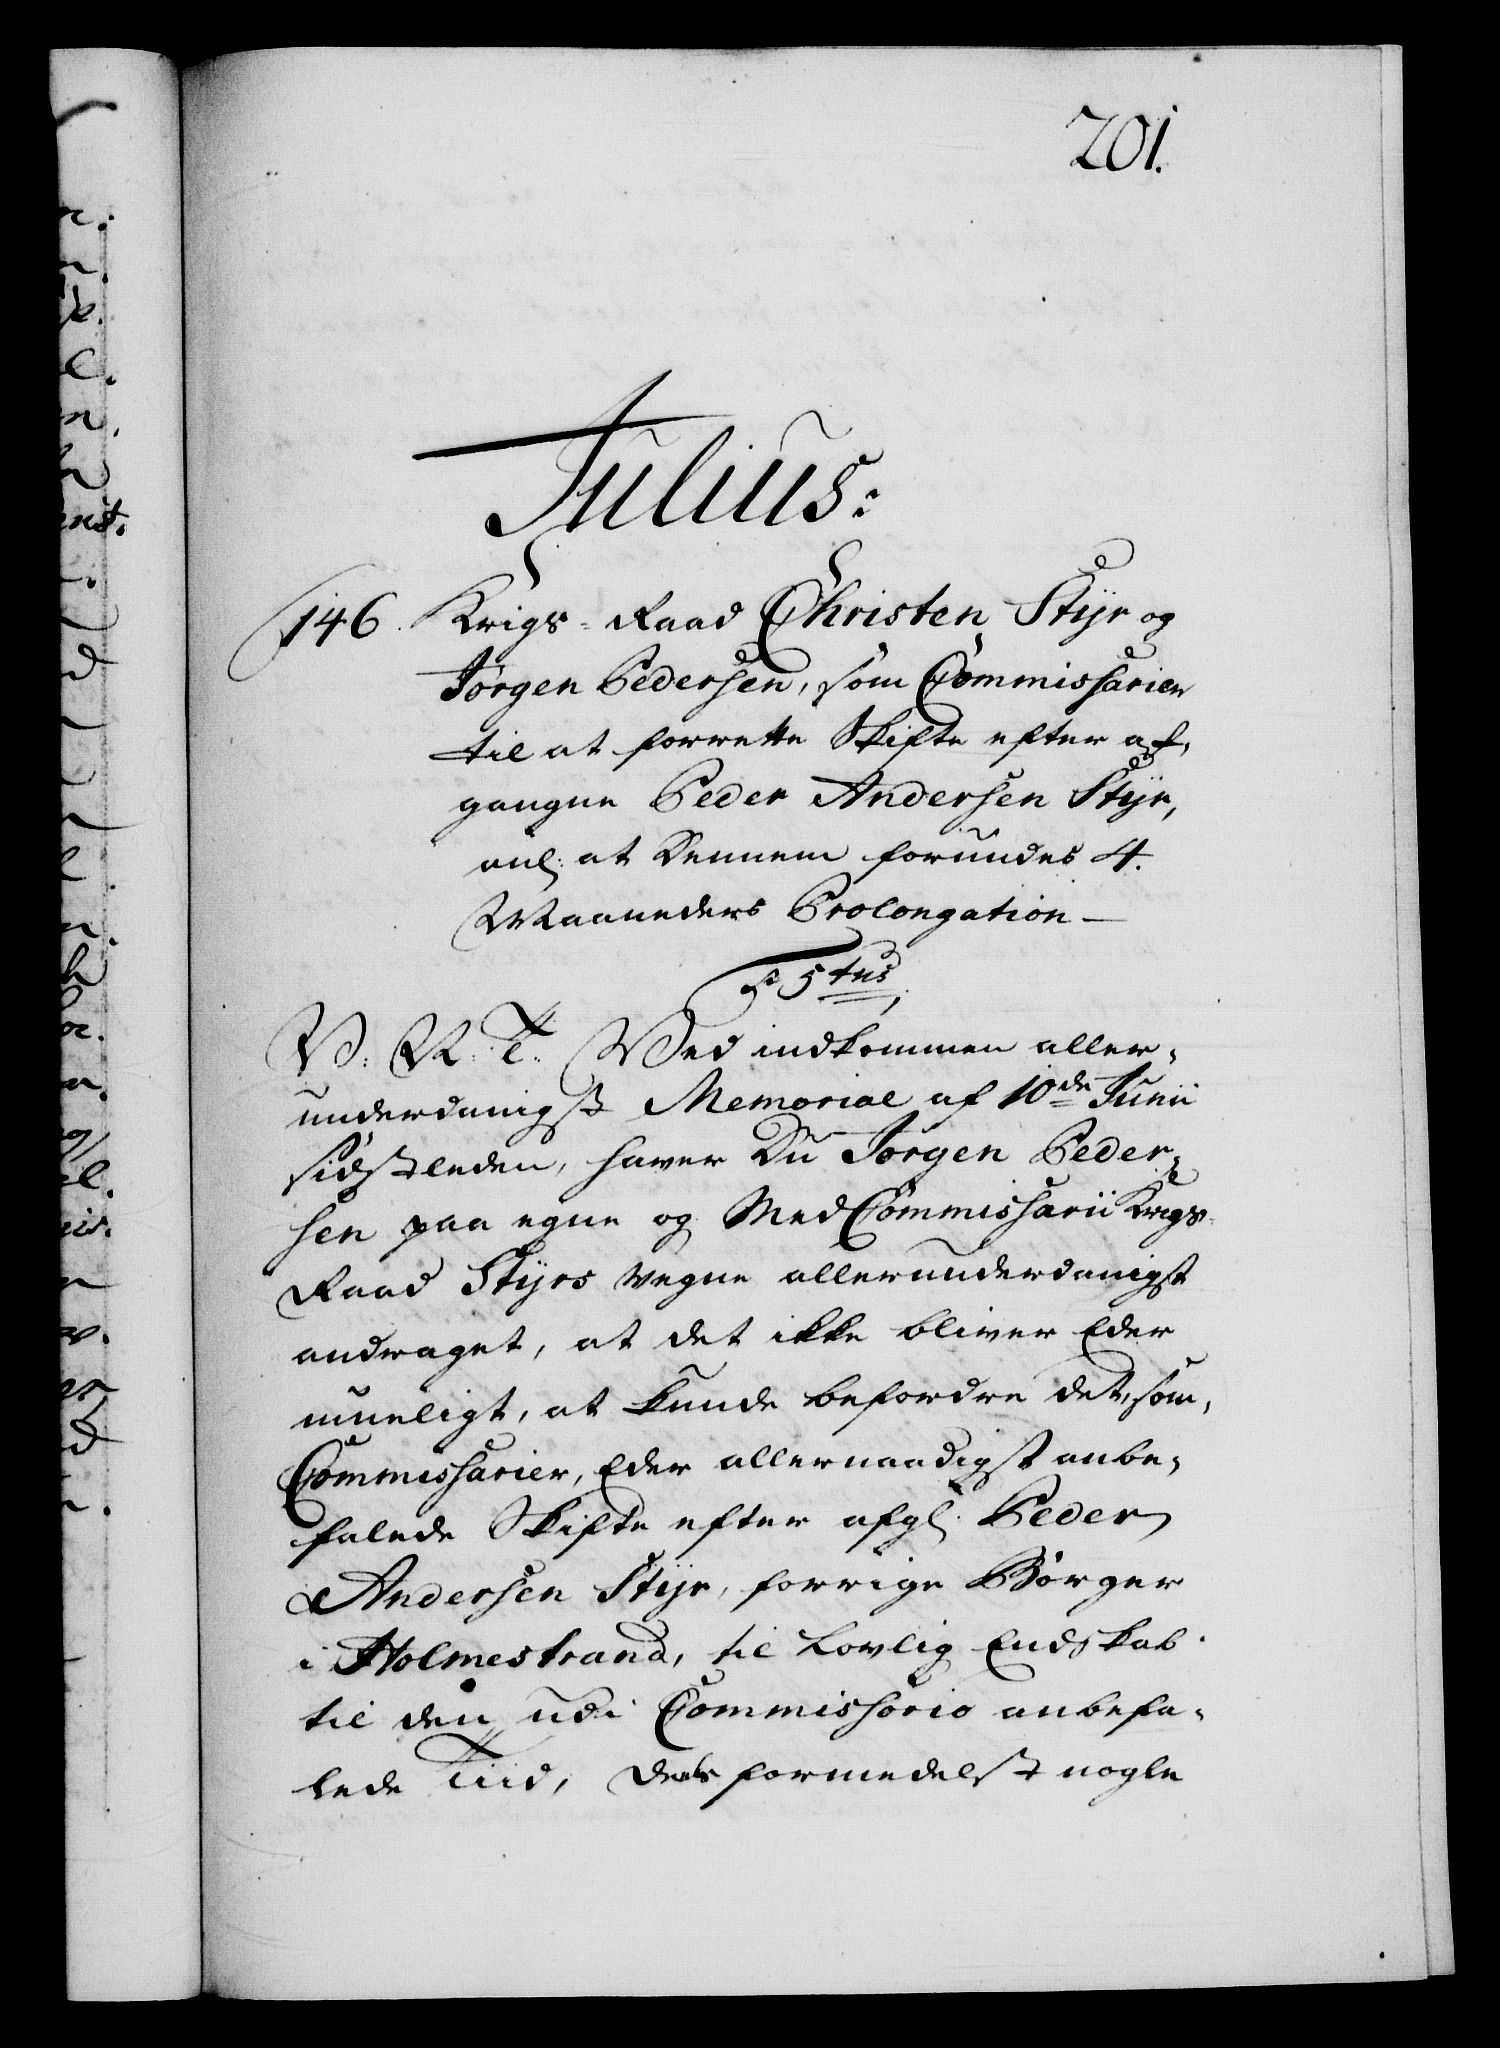 201.
Julius:
146. Krigs-Raad Christen Stÿr og
Jørgen Pedersen, som Commissarier
til at forrette Skifte efter af-
gangne Peder Andersen Stÿr,
anl: at dennem forundes 4.
Maaneders Prolongation —
5tus
V: R: T: Ved indkommen aller-
underdanigst Memorial af 10de Junii
sidstleden, haver Du Jørgen Peder-
sen paa egne og Med Commissarii Krigs-
Raad Stÿrs vegne allerunderdanigst
andraget, at det ikke bliver Eder
mueligt, at kunde befordre det, som,
Commissarier, Eder allernaadigst anbe-
falede Skifte efter afg: Peder
Andersen Stÿr, forrige Børger
i Holmestrand, til Lovlig Endskab
til den udi Commissorio anbefa-
lede Tiid, deels formedelst nogle